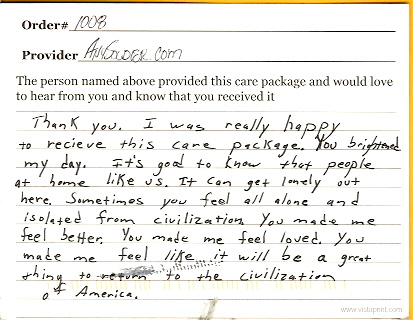 Order# 1008
Provider AnySoldier.com
The person named above provided this care package and would love
to hear from you and know that you received it
Thank you. I was really happy
to recieve this care package. You brightened
my day. It's good to know that people
at home like us. It can get lonely out
here. Sometimes you feel all alone and
isolated from civilization. You made me
feel better. You made me feel loved. You
made me feel like it will be a great
thing to return to the civilization
of America.
www.vistaprint.com